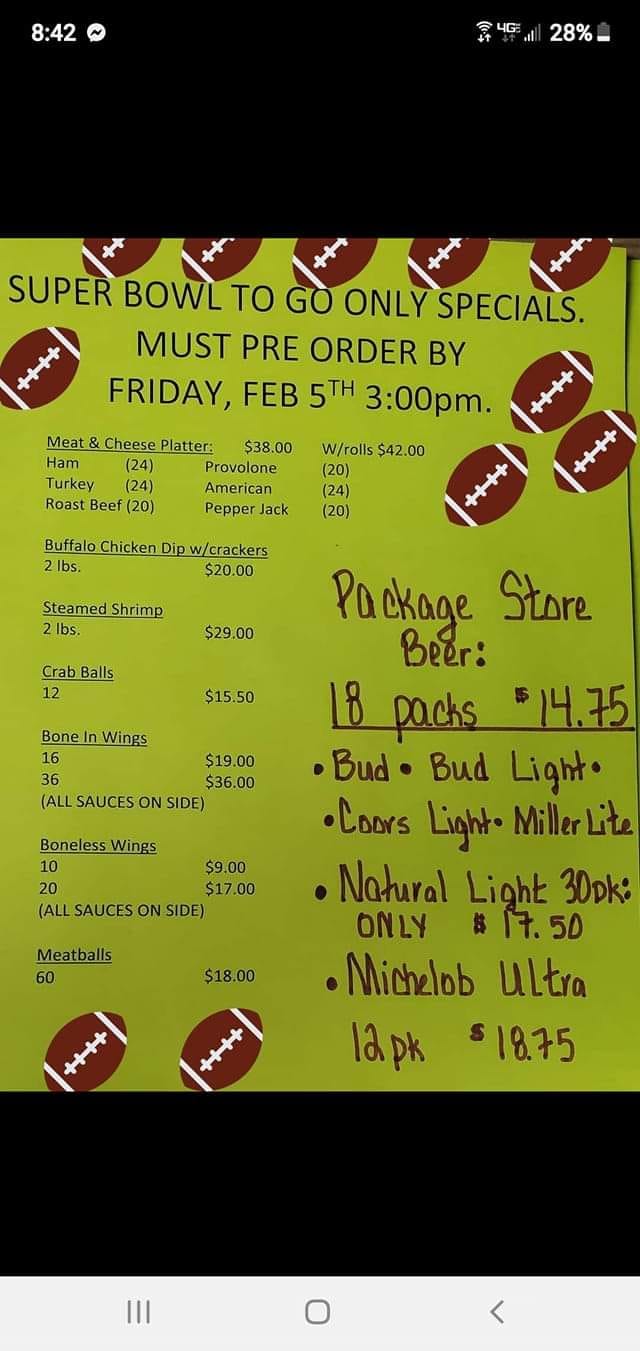 8:42
4GE 28%
SUPER BOWL TO GO ONLY SPECIALS.
MUST PRE ORDER BY
FRIDAY, FEB 5TH 3:00pm.
Meat & Cheese Platter: $38.00 W/rolls $42.00
Ham (24) Provolone (20)
Turkey (24) American (24)
Roast Beef (20) Pepper Jack (20)
Buffalo Chicken Dip w/crackers
2 lbs. $20.00
Steamed Shrimp
2 lbs. $29.00
Crab Balls
12 $15.50
Bone In Wings
16 $19.00
36 $36.00
(ALL SAUCES ON SIDE)
Boneless Wings
10 $9.00
20 $17.00
(ALL SAUCES ON SIDE)
Meatballs
60 $18.00
Package Store
Beer:
18 packs $14.75
• Bud • Bud Light •
• Coors Light • Miller Lite
• Natural Light 30pk:
ONLY $17.50
• Michelob Ultra
12pk $18.75